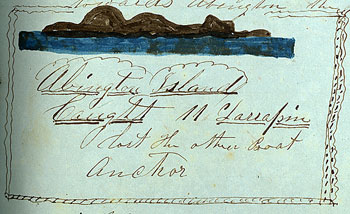 towards Abington the
Abington Island
Caught 11 Tarrapin
lost the other Boat
Anchor